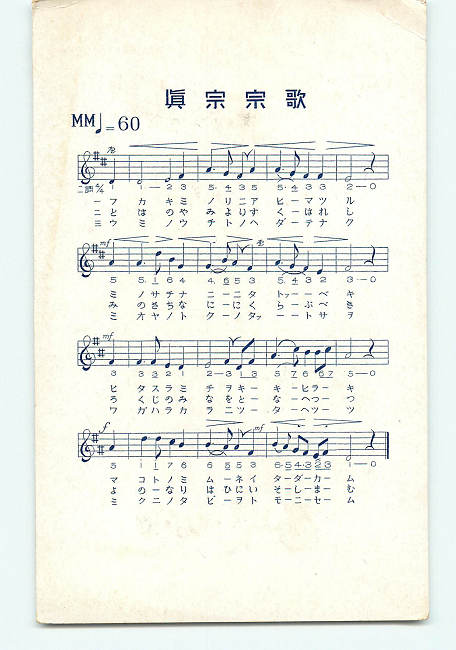 眞宗宗歌
MM♩=60
二調 4/4 1 1—2 3 5·4 3 5 5·4 3 3 2—0
一フ カキミ ノリニア ヒーマツ ル
二と はのや みよりす くーはれ し
三ウ ミノウ チトノヘ ダーテナ ク
mf
5 5·1 6 4 4·5 5 3 1 5·4 3 2 3—0
ミ ノサチナ ニーニタ トーフーベ キ
み のさちな にーにく らーぶべ き
ミ オヤノト クーノタフ ートサ ヲ
mf
3 3 3 2 1 2—1 3 5 7 6 6 7 5—0
ヒ タスラミ チヲキー キーヒラー キ
ろ くじのみ なをとー なーへつー つ
ワ ガハラカ ラニツー タヘツー ツ
f mf
5 1—1 7 6 6 5 5 3 6·5 4·3 2 3 1—0
マ コトノミ ムーネイ ターダーカー ム
よ のーなり はひにい そーしーまー む
ミ クニノタ ビーヲト モーニーセー ム